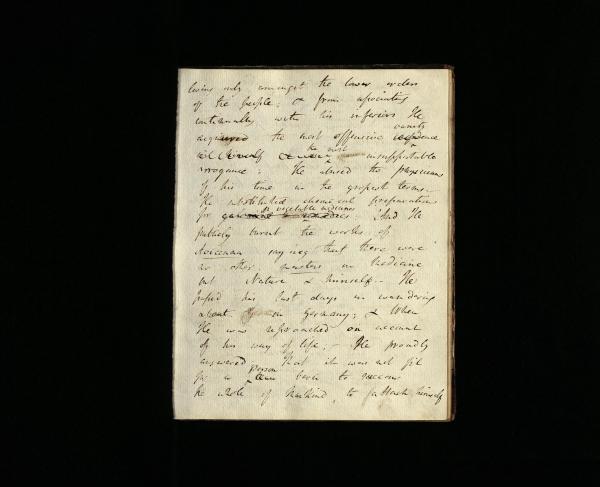 living only amongst the lower orders
of the people; & from associating
continually with his inferiors He
vanity
acquired the most offensive
the most
& insupportable
arrogance: He abused the physicians
of his time in the grossest terms.
He substituted chemical preparations
vegetable medicines
for And He
publicly burnt the works of
Avicenna saying that there were
no other masters in Medicine
but Nature & himself. He
passed his last days in wandering
about in Germany; & When
He was reproached on account
of his way of life; - He proudly
answered that it was not fit
person
for a born to reform
the whole of Mankind, to attach himself